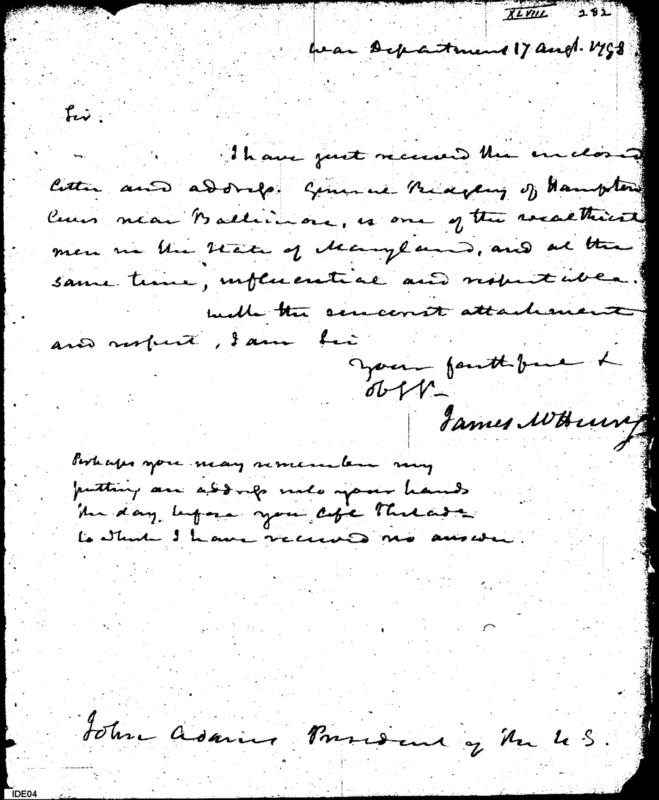 XLVIII 282
War Department 17 Augt. 1798
Sir.
I have just received the enclosed
letter and address. General Ridgley of Hampton
lives near Baltimore, is one of the wealthiest
men in the State of Maryland, and at the
same time, influential and respectable.
With the sincerest attachment
and respect, I am Sir
Your faithful &
James McHenry
Perhaps you may remember my
putting an address into your hands
the day before you left Philade
to which I have received no answer.
John Adams President of the U.S.
IDE04